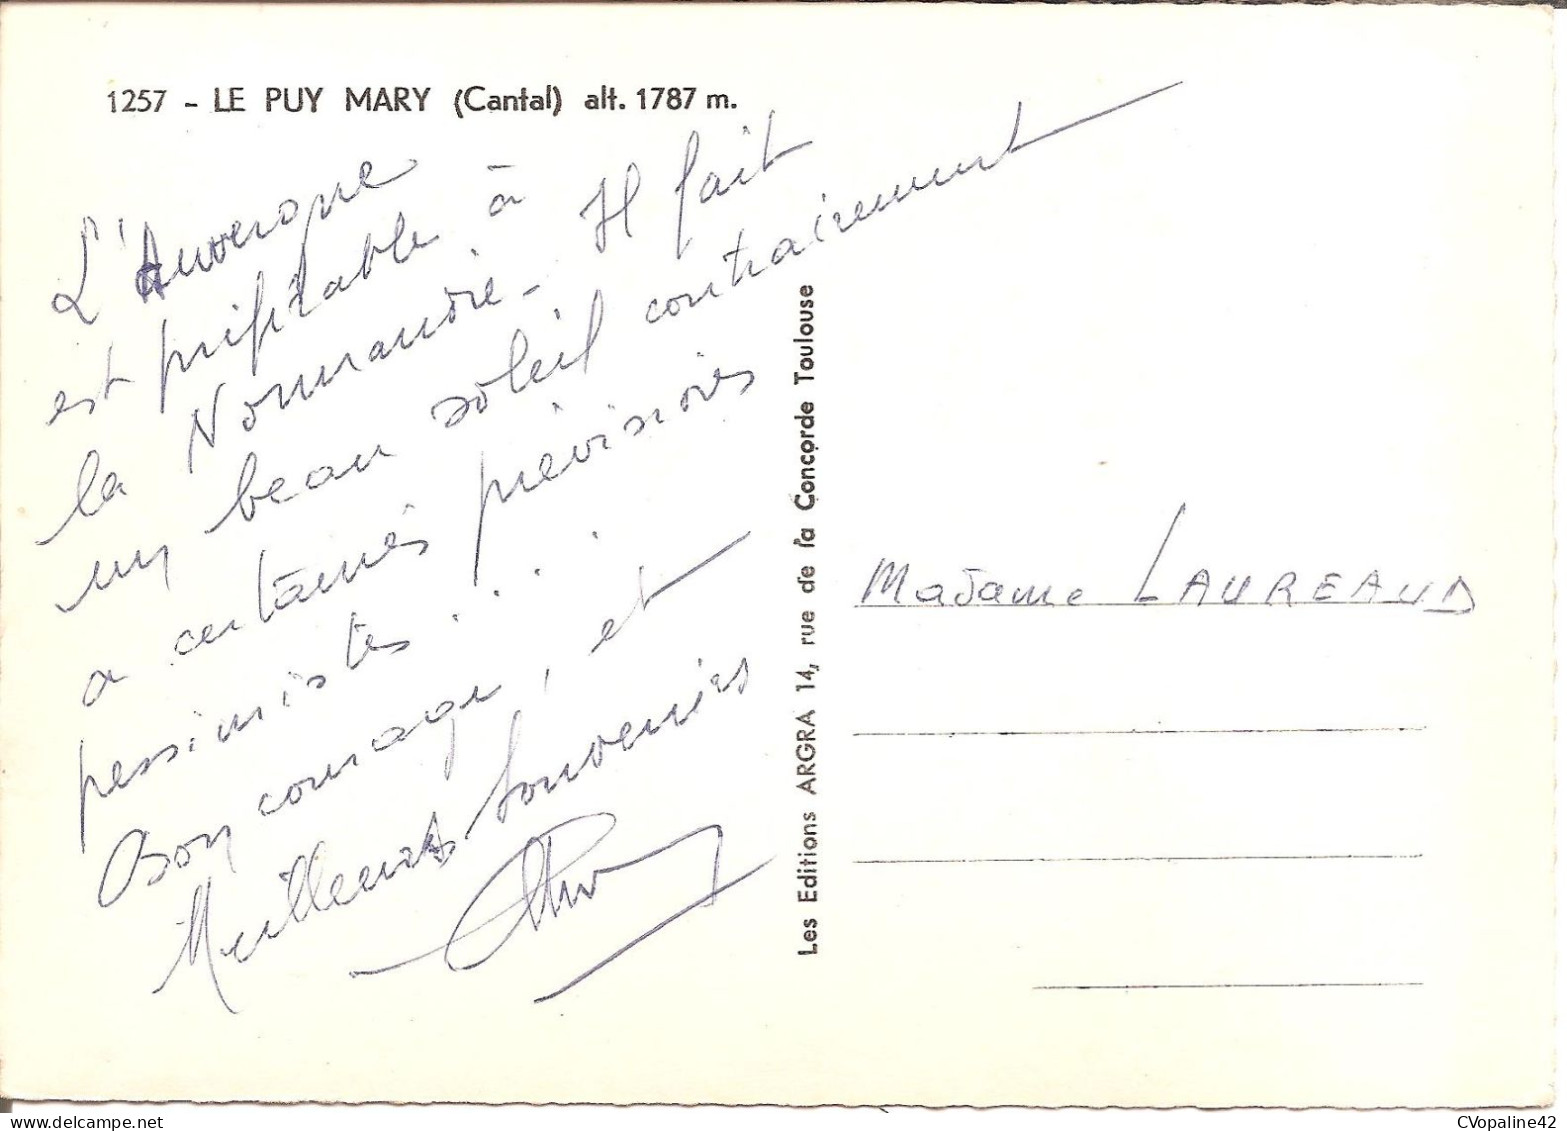 1257 - LE PUY MARY (Cantal) alt. 1787 m.
L'Auvergne
est préférable à
la Normandie - Il fait
un beau soleil contrairement
a certaines prévisions
pessimistes . . . .
Bon courage, et
Meilleurs Souvenirs
Les Editions ARGRA 14, rue de la Concorde Toulouse
Madame LAUREAUD
www.delcampe.net
CVopaline42